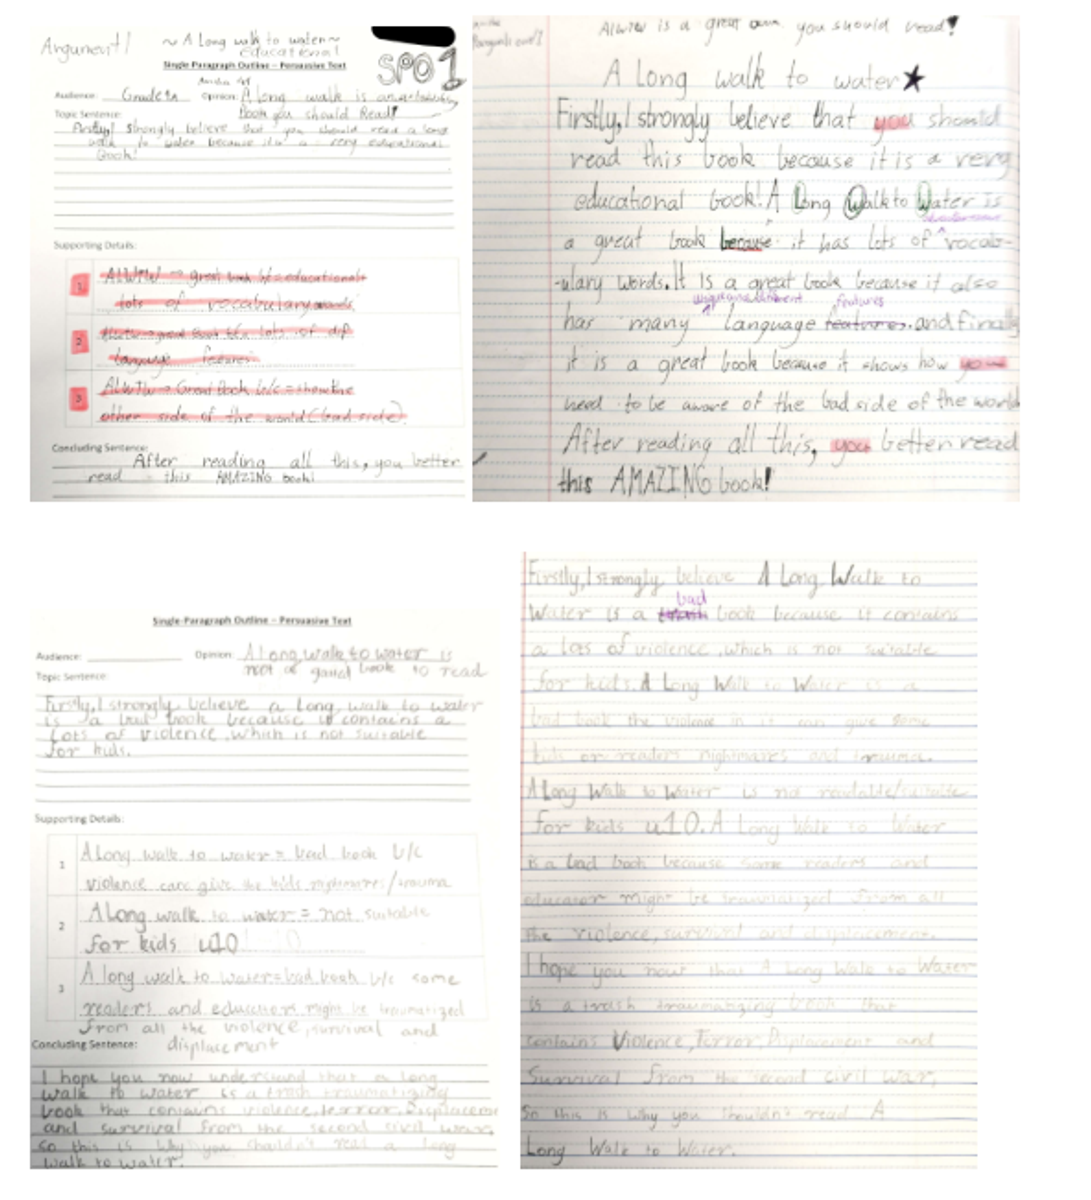 Argument 1
~ A Long walk to water ~
educational
Single Paragraph Outline – Persuasive Text
SPO 1
Audience: Grade
Opinion: A long walk is an
book you should Read!
Topic Sentence:
Firstly, I strongly believe that you should read a long
walk to water because it is a very educational
book!
Supporting Details:
1 ALWTW → great book b/c = educational
lots of vocabulary
2 lots of dif
language features
3 ALWTW → Great Book b/c = show the
other side of the world (bad side)
Concluding Sentence:
After reading all this, you better
read this AMAZING book!
ALWTW is a great you should read!
A Long walk to water ★
Firstly, I strongly believe that you should
read this book because it is a very
educational book! A Long Walk to Water is
a great book because it has lots of vocab-
ulary words. It is a great book because it also
features
has many language features. and finally
it is a great book because it shows how you
need to be aware of the bad side of the world
After reading all this, you better read
this AMAZING book!
Single-Paragraph Outline – Persuasive Text
Audience:
Opinion: A Long walk to water is
not a good book to read
Topic Sentence:
Firstly, I strongly believe a long walk to water
is a bad book because it contains a
lots of violence, which is not suitable
for kids.
Supporting Details:
1 A Long walk to water = bad book b/c
violence can give the kids nightmares/trauma
2 A Long walk to water = not suitable
for kids u10
3 A long walk to water = bad book b/c some
readers and educators might be traumatized
from all the violence, survival and
displacement
Concluding Sentence:
I hope you now understand that a long
walk to water is a trash traumatizing
book that contains violence, terror, Displaceme
and survival from the second civil war,
so this is why you shouldn't read a long
walk to water.
Firstly, I strongly believe A Long Walk to
bad
Water is a trash book because it contains
a lots of violence, which is not suitable
for kids. A Long Walk to Water is a
bad book the violence in it can give some
kids or readers nightmares and trauma.
A Long Walk to Water is not readable/suitable
for kids u10. A Long Walk to Water
is a bad book because some readers and
educator might be traumatized from all
the violence, survival and displacement.
I hope you now that A Long Walk to Water
is a trash traumatizing book that
contains Violence, Terror, Displacement and
Survival from the second civil war,
So this is why you shouldn't read A
Long Walk to Water.